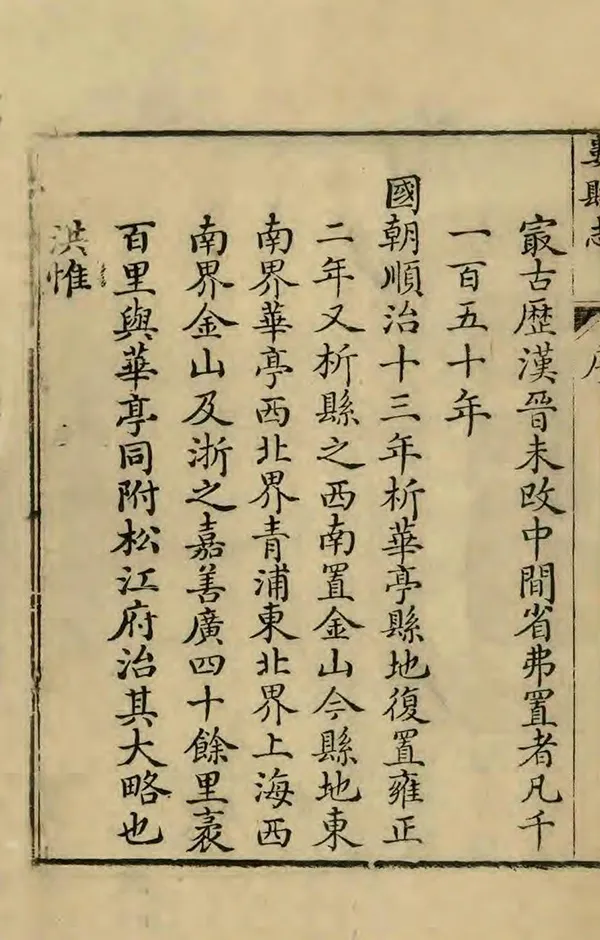 婁縣志
序
最古歷漢晉未改中間省弗置者凡千
一百五十年
國朝順治十三年析華亭縣地復置雍正
二年又析縣之西南置金山今縣地東
南界華亭西北界青浦東北界上海西
南界金山及浙之嘉善廣四十餘里袤
百里與華亭同附松江府治其大略也
洪惟